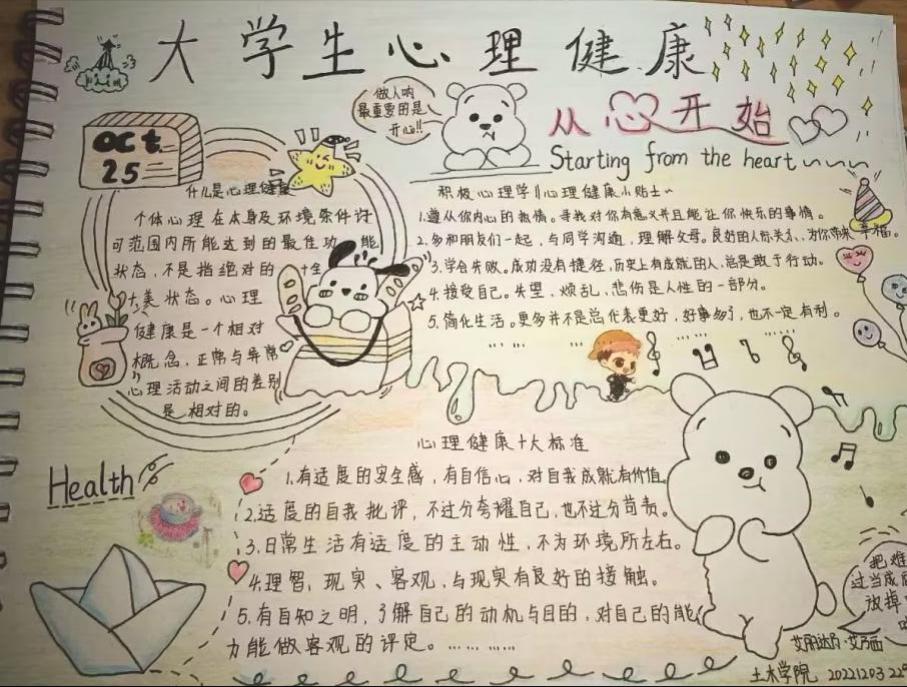 大学生心理健康
做人呐
最重要的是
开心!!
从心开始
Starting from the heart
Oct
25
什么是心理健康
个体心理在本身及环境条件许
可范围内所能达到的最佳功能
状态，不是指绝对的十全
十美状态。心理
健康是一个相对
概念，正常与异常
心理活动之间的差别
是相对的。
积极心理学||心理健康小贴士~
1.遵从你内心的热情。寻找对你有意义并且能让你快乐的事情。
2.多和朋友们一起，与同学沟通，理解父母。良好的人际关系，为你带来幸福。
3.学会失败。成功没有捷径，历史上有成就的人，总是敢于行动。
4.接受自己。失望、烦乱、悲伤是人性的一部分。
5.简化生活。更多并不总代表更好，好事多了，也不一定有利。
...... ... ...... ......
心理健康十大标准
1.有适度的安全感，有自信心，对自我成就有价值。
2.适度的自我批评，不过分夸耀自己，也不过分苛责。
3.日常生活有适度的主动性，不为环境所左右。
4.理智，现实、客观，与现实有良好的接触。
5.有自知之明，了解自己的动机与目的，对自己的能
力能做客观的评定。... ... ...
Health
把难
过当成
放掉
土木学院 20221203229